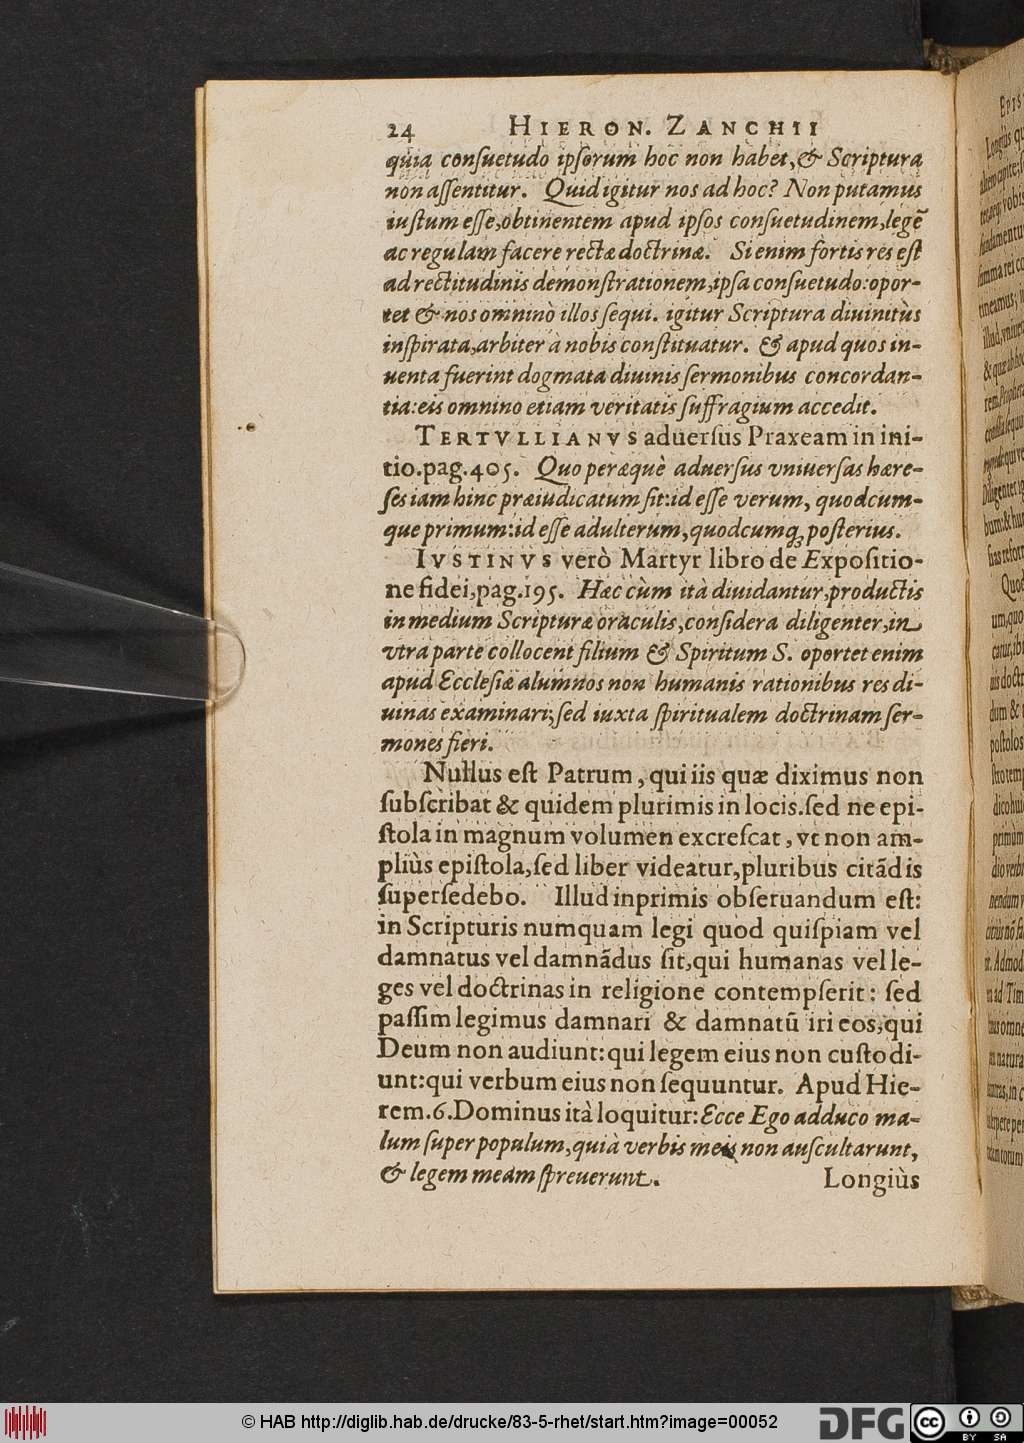 24 HIERON. ZANCHII
quia conſuetudo ipſorum hoc non habet, & Scriptura
non aſſentitur. Quid igitur nos ad hoc? Non putamus
iuſtum eſſe, obtinentem apud ipſos conſuetudinem, legē
ac regulam facere rectæ doctrinæ. Si enim fortis res eſt
ad rectitudinis demonſtrationem, ipſa conſuetudo: opor-
tet & nos omninò illos ſequi. igitur Scriptura diuinitùs
inſpirata, arbiter à nobis conſtituatur. & apud quos in-
uenta fuerint dogmata diuinis ſermonibus concordan-
tia: eis omnino etiam veritatis ſuffragium accedit.
TERTVLLIANVS aduerſus Praxeam in ini-
tio. pag. 405. Quo peræquè aduerſus vniuerſas hære-
ſes iam hinc præiudicatum ſit: id eſſe verum, quodcum-
que primum: id eſſe adulterum, quodcumq; poſterius.
IVSTINVS verò Martyr libro de Expoſitio-
ne fidei, pag. 195. Hæc cùm ità diuidantur, productis
in medium Scripturæ oraculis, conſidera diligenter, in
vtra parte collocent filium & Spiritum S. oportet enim
apud Eccleſiæ alumnos non humanis rationibus res di-
uinas examinari; ſed iuxta ſpiritualem doctrinam ſer-
mones fieri.
Nullus eſt Patrum, qui iis quæ diximus non
ſubſcribat & quidem plurimis in locis. ſed ne epi-
ſtola in magnum volumen excreſcat, vt non am-
pliùs epiſtola, ſed liber videatur, pluribus citãdis
ſuperſedebo. Illud inprimis obſeruandum eſt:
in Scripturis numquam legi quod quiſpiam vel
damnatus vel damnãdus ſit, qui humanas vel le-
ges vel doctrinas in religione contempſerit: ſed
paſſim legimus damnari & damnatũ iri eos, qui
Deum non audiunt: qui legem eius non cuſtodi-
unt: qui verbum eius non ſequuntur. Apud Hie-
rem. 6. Dominus ità loquitur: Ecce Ego adduco ma-
lum ſuper populum, quià verbis meis non auſcultarunt,
& legem meam ſpreuerunt. Longiùs
© HAB http://diglib.hab.de/drucke/83-5-rhet/start.htm?image=00052
DFG
cc BY SA